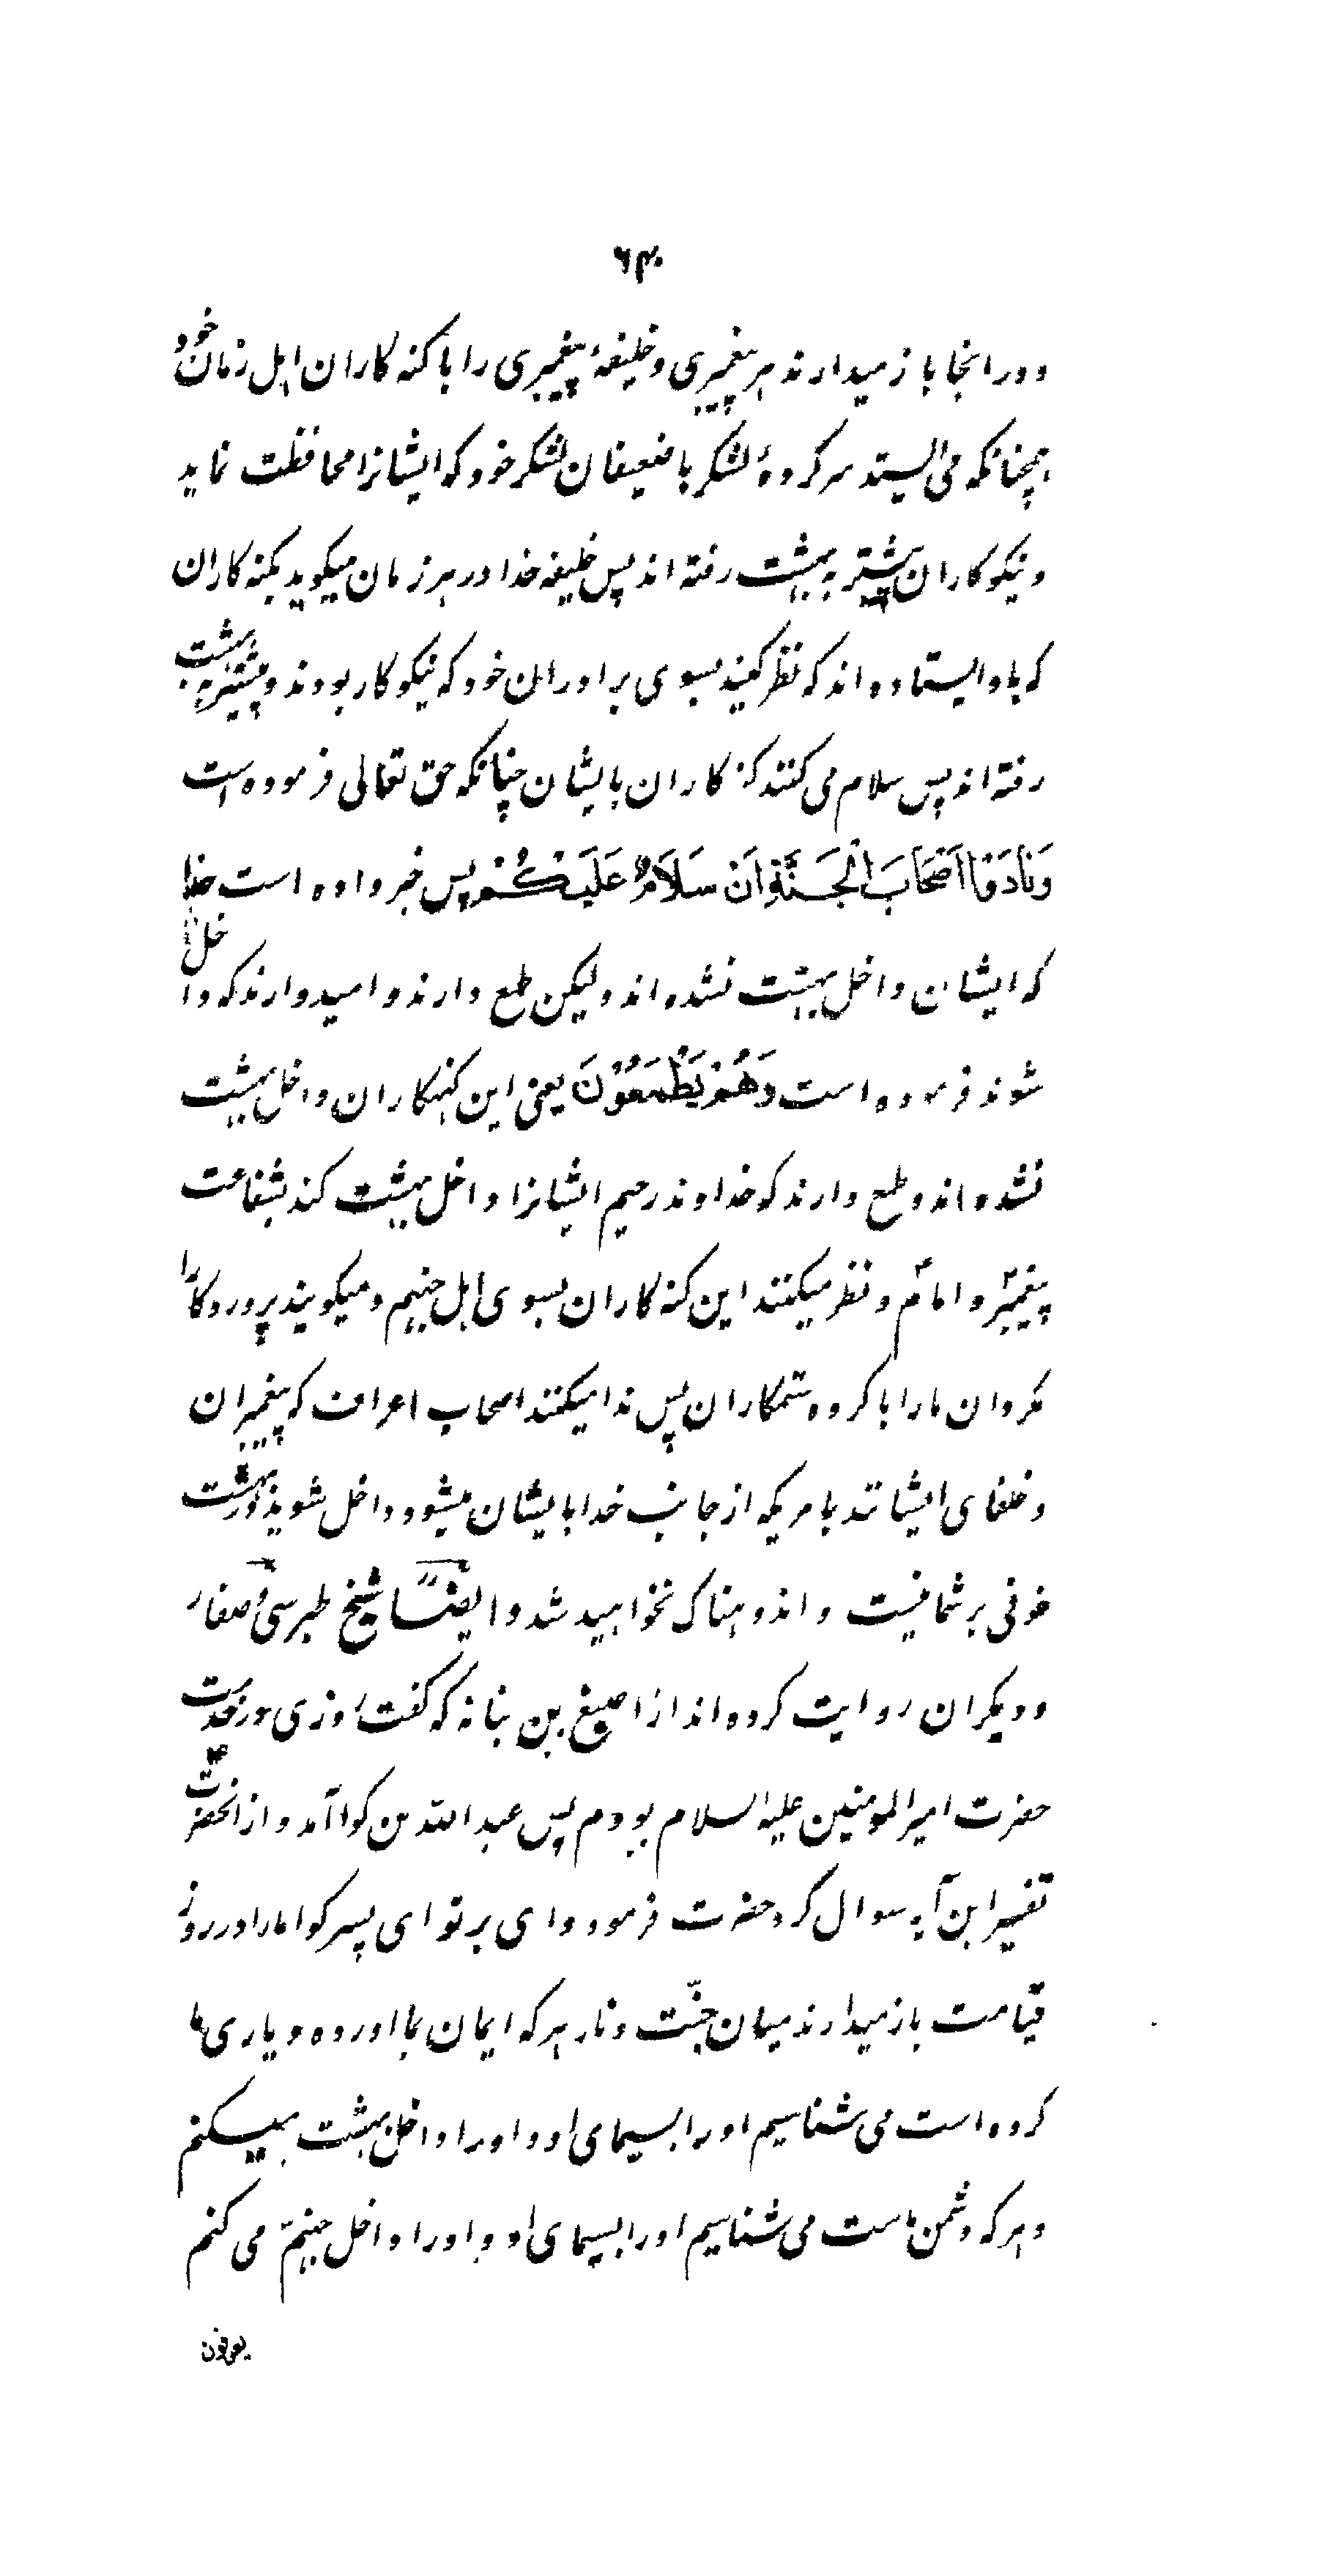 ۶۴۰
و در انجا باز میدارند هر پیغمبری و خلیفهٔ پیغمبری را با کنه کاران اهل زمان خود
همچنانکه می ایستد سرکروهٔ لشکر با ضعیفان لشکر خود که ایشانرا محافظت نماید
و نیکوکاران پیشتر به بهشت رفته اند پس خلیفه خدا در هر زمان میکوید بکنه کاران
که باو ایستاده اند که نظر کنید بسوی برادران خود که نیکوکار بودند و پیشتر به بهشت
رفته اند پس سلام می کنند کنه کاران بایشان چنانکه حق تعالی فرموده است
وَنَادَوْا اَصْحَابَ الْجَنَّةِ اَنْ سَلَامٌ عَلَیْکُمْ پس خبر داده است خدا
که ایشان داخل بهشت نشده اند ولیکن طمع دارند و امیدوارند که داخل
شوند فرموده است وَهُمْ یَطْمَعُوْنَ یعنی این کنهکاران داخل بهشت
نشده اند و طمع دارند که خداوند رحیم ایشانرا داخل بهشت کند بشفاعت
پیغمبرؐ و امامؑ و نظر میکنند این کنه کاران بسوی اهل جهنم و میکویند پروردکارا
مکردان ما را با کروه ستمکاران پس ندا میکنند اصحاب اعراف که پیغمبران
و خلفای ایشانند بامریکه از جانب خدا بایشان میشود داخل شوید در بهشت
خوفی بر شما نیست و اندوهناک نخواهید شد و ایضًا شیخ طبرسی و صفار
و دیکران روایت کرده اند از اصبغ بن نباته که کفت روزی در خدمت
حضرت امیرالمومنین علیه السلام بودم پس عبد الله بن کوا آمد و از انحضرتؑ
تفسیر این آیه سوال کرد حضرت فرمود وای بر تو ای پسر کوا ما را در روز
قیامت باز میدارند میان جنّت و نار هر که ایمان بما اورده و یاری ما
کرده است می شناسیم او را بسیمای او و او را داخل بهشت میکنم
و هر که دشمن ماست می شناسیم او را بسیمای او و او را داخل جهنّم می کنم
یعرفون